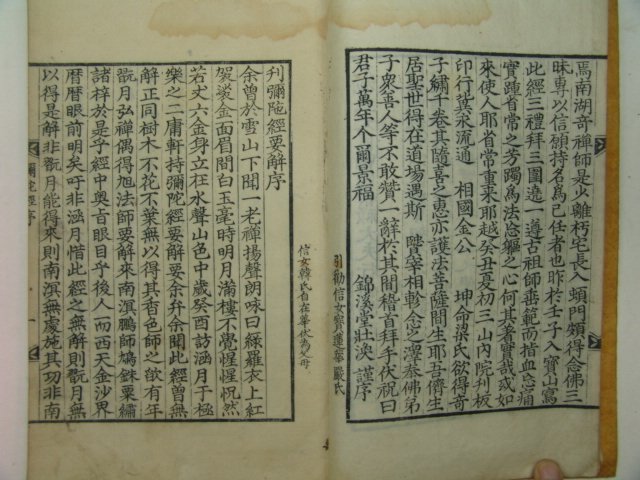 焉南湖奇禪師是少離朽宅長入㱔門類得念佛三
昧專以信願持名爲己任者也昨於壬子入寶山寫
此經三禮拜三圍遶一遵古祖師垂範而指血忘痛
實踐省常之芳躅爲法忘軀之心何其者實哉或如
來使人耶省常重來耶越癸丑夏初三山內院刋板
印行葉永流通 相國金公 坤命梁氏欲得奇
子繡千卷其隨喜之惠亦護法菩薩間生耶吾儕生
居聖世得在道場遇斯 嘗宰相彰念公澤泰佛弟
子衆喜人等不敢贊一辭於其間稽首拜手伏祝曰
君子萬年介爾景福 錦溪堂壯泱 謹序
引勸信女寶蓮華嚴氏
信女韓氏自在華伏爲父母
刋彌陁經要解序
余曾於雪山下聞一老禪揚聲朗咏曰綠羅衣上紅
袈裟金面眉間白玉毫時明月滿樓不覺惺惺怳然
若丈六金身立在水聲山色中歲癸酉訪涵月于極
樂之二庸軒持彌陁經要解余弁余聞此經曾無
解正同樹木不花不葉無以得其香色師之欲有年
翫月弘禪偶得旭法師要解來南溟鵬師鳩銖粟繡
諸梓於是乎經中奧旨眼目乎後人而西天金沙界
曆曆眼前明矣吁非涵月惜此經之無解則翫月無
以得是解非翫月能得來則南溟無處施其功非南
彌陁經序
一